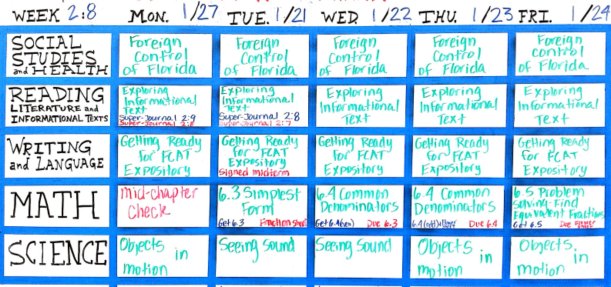 WEEK 2:8 MON. 1/27 TUE. 1/21 WED 1/22 THU. 1/23 FRI. 1/24
SOCIAL STUDIES and HEALTH
Foreign Control of Florida
Foreign Control of Florida
Foreign Control of Florida
Foreign Control of Florida
Foreign Control of Florida
READING LITERATURE and INFORMATIONAL TEXTS
Exploring Informational Text
Super-Journal 2:9
Super-Journal 2:8
Exploring Informational Text
Super-Journal 2:8
Super-Journal 2:7
Exploring Informational Text
Exploring Informational Text
Exploring Informational Text
WRITING and LANGUAGE
Getting Ready for FCAT Expository
Getting Ready for FCAT Expository
Signed midterm
Getting Ready for FCAT Expository
Getting Ready for FCAT Expository
Getting Ready for FCAT Expository
MATH
Mid-chapter Check
6.3 Simplest Form
Get 6.3
6.4 Common Denominators
Due 6.3
6.4 Common Denominators
Due 6.4
6.5 Problem Solving: Find Equivalent Fractions
Get 6.5
SCIENCE
Objects in motion
Seeing Sound
Seeing Sound
Objects in motion
Objects in motion